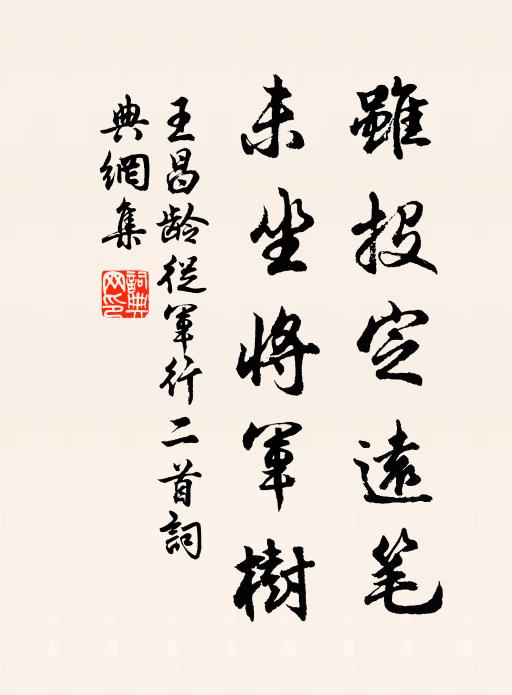 雖投定遠笔
未坐将軍樹
王昌龄從軍行二首詞
典網集
詞典网印